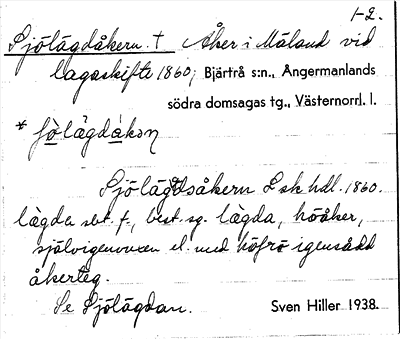 1-2.
Sjölägdåkern. † Åker i Mäland vid
lagaskifte 1860; Bjärtrå s:n., Ångermanlands
södra domsagas tg., Västernorrl. l.
* ʃö̀lägdákɷn
Sjölägdsåkern L sk hdl. 1860.
lägda sbt. f., best. sg. lägda, höåker,
självigenvuxen el. med höfrö igensådd
åkerteg.
Se Sjölägdan. Sven Hiller 1938.